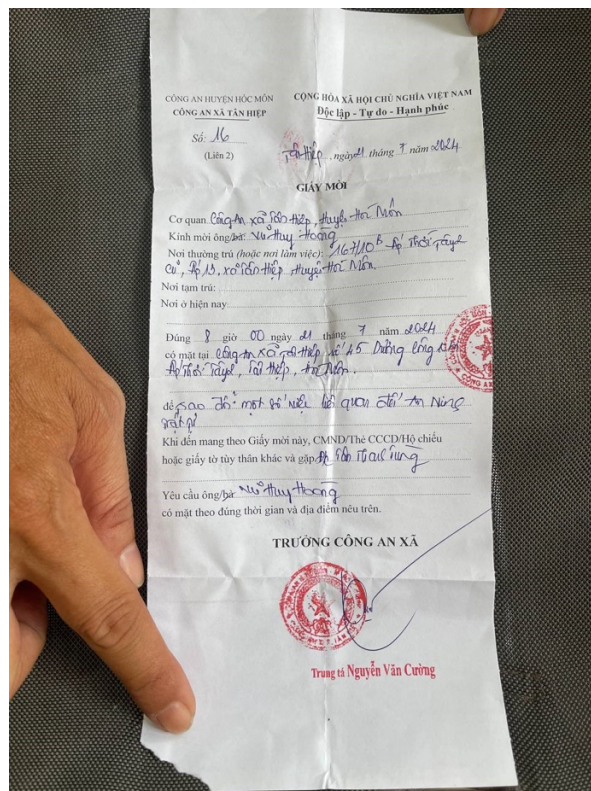 CÔNG AN HUYỆN HÓC MÔN
CÔNG AN XÃ TÂN HIỆP
Số: 16
(Liên 2)
CỘNG HÒA XÃ HỘI CHỦ NGHĨA VIỆT NAM
Độc lập - Tự do - Hạnh phúc
Tân Hiệp, ngày 21 tháng 7 năm 2024
GIẤY MỜI
Cơ quan Công An xã Tân Hiệp, Huyện Hóc Môn
Kính mời ông/bà: Vũ Huy Hoàng
Nơi thường trú (hoặc nơi làm việc): 167/10B Ấp Thới Tây
Cũ, Ấp 13, xã Tân Hiệp, Huyện Hóc Môn.
Nơi tạm trú:
Nơi ở hiện nay
Đúng 8 giờ 00 ngày 21 tháng 7 năm 2024
có mặt tại Công An xã Tân Hiệp, số 45 Dương Công Khi
Ấp Thới Tây, Tân Hiệp, Hóc Môn.
để trao đổi một số việc liên quan đến An Ninh
trật tự
Khi đến mang theo Giấy mời này, CMND/Thẻ CCCD/Hộ chiếu
hoặc giấy tờ tùy thân khác và gặp
Yêu cầu ông/bà Vũ Huy Hoàng
có mặt theo đúng thời gian và địa điểm nêu trên.
TRƯỞNG CÔNG AN XÃ
Trung tá Nguyễn Văn Cường